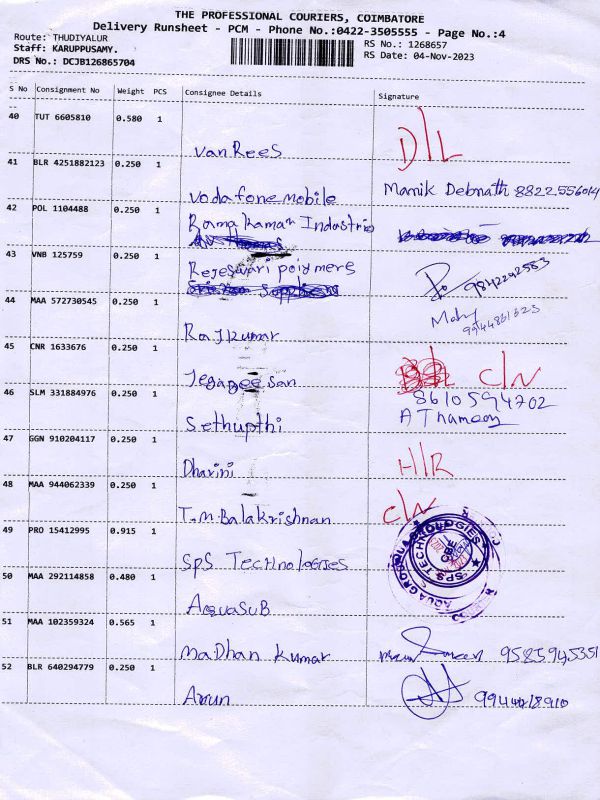 THE PROFESSIONAL COURIERS, COIMBATORE
Delivery Runsheet - PCM - Phone No.:0422-3505555 - Page No.:4
Route: THUDIYALUR
RS No.: 1268657
Staff: KARUPPUSAMY.
RS Date: 04-Nov-2023
DRS No.: DCJB126865704
S No Consignment No Weight PCS Consignee Details Signature
40 TUT 6605810 0.580 1 VanRees D/L
41 BLR 4251882123 0.250 1 Vodafone mobile Manik Debnath 8822556014
42 POL 1104488 0.250 1 Rama Kaman Industries
43 VNB 125759 0.250 1 Rejeswari polymers 9842292583
44 MAA 572730545 0.250 1 Rajkumar 9944861323
45 CNR 1633676 0.250 1 Jegadeesan C/N
8610594702
46 SLM 331884976 0.250 1 Sethupthi A Thameem
47 GGN 910204117 0.250 1 Dharini H/R
48 MAA 944062339 0.250 1 T.M.Balakrishnan C/N
49 PRO 15412995 0.915 1 SPS Technologies
SPS TECHNOLOGIES
CBE
50 MAA 292114858 0.480 1 AcquaSuB
51 MAA 102359324 0.565 1 Madhan Kumar 9585945351
52 BLR 640294779 0.250 1 Arun